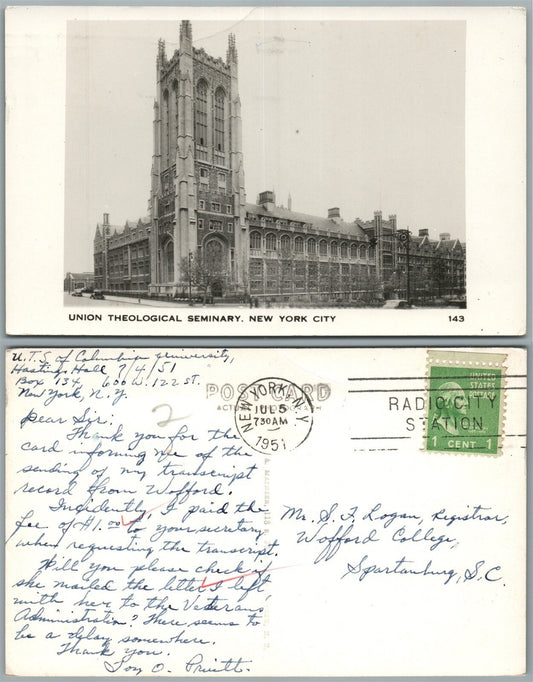 UNION THEOLOGICAL SEMINARY, NEW YORK CITY 143
U.T.S of Columbia University,
Hastings Hall 7/4/51
Box 134, 600 W. 122 ST.
New York, N.Y.
POST CARD
2
NEW YORK, N.Y.
JUL 5
730 AM
1951
RADIO CITY
STATION
UNITED STATES POSTAGE
1 CENT 1
Dear Sir:
Thank you for the
card informing me of the
sending of my transcript
record from Wofford.
Incidently, I paid the
fee of $1.00 to your secretary
when requesting the transcript.
Will you please check if
she mailed the letter I left
with her to the Veterans
Administration? There seems to
be a delay somewhere.
Thank you.
Pruitt
Mr. S. F. Logan, Registrar,
Wofford College,
Spartanburg, S.C.